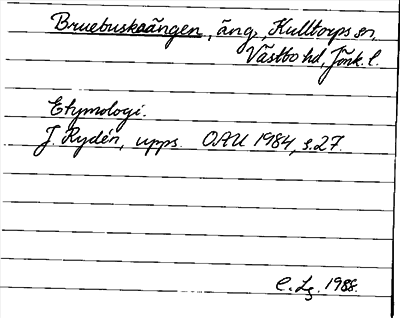 Bruebuskaängen, äng, Kulltorps sn,
Västbo hd, Jönk. l.
Etymologi.
J. Rydén, upps. OAU 1984, s. 27.
C. Lg. 1988.